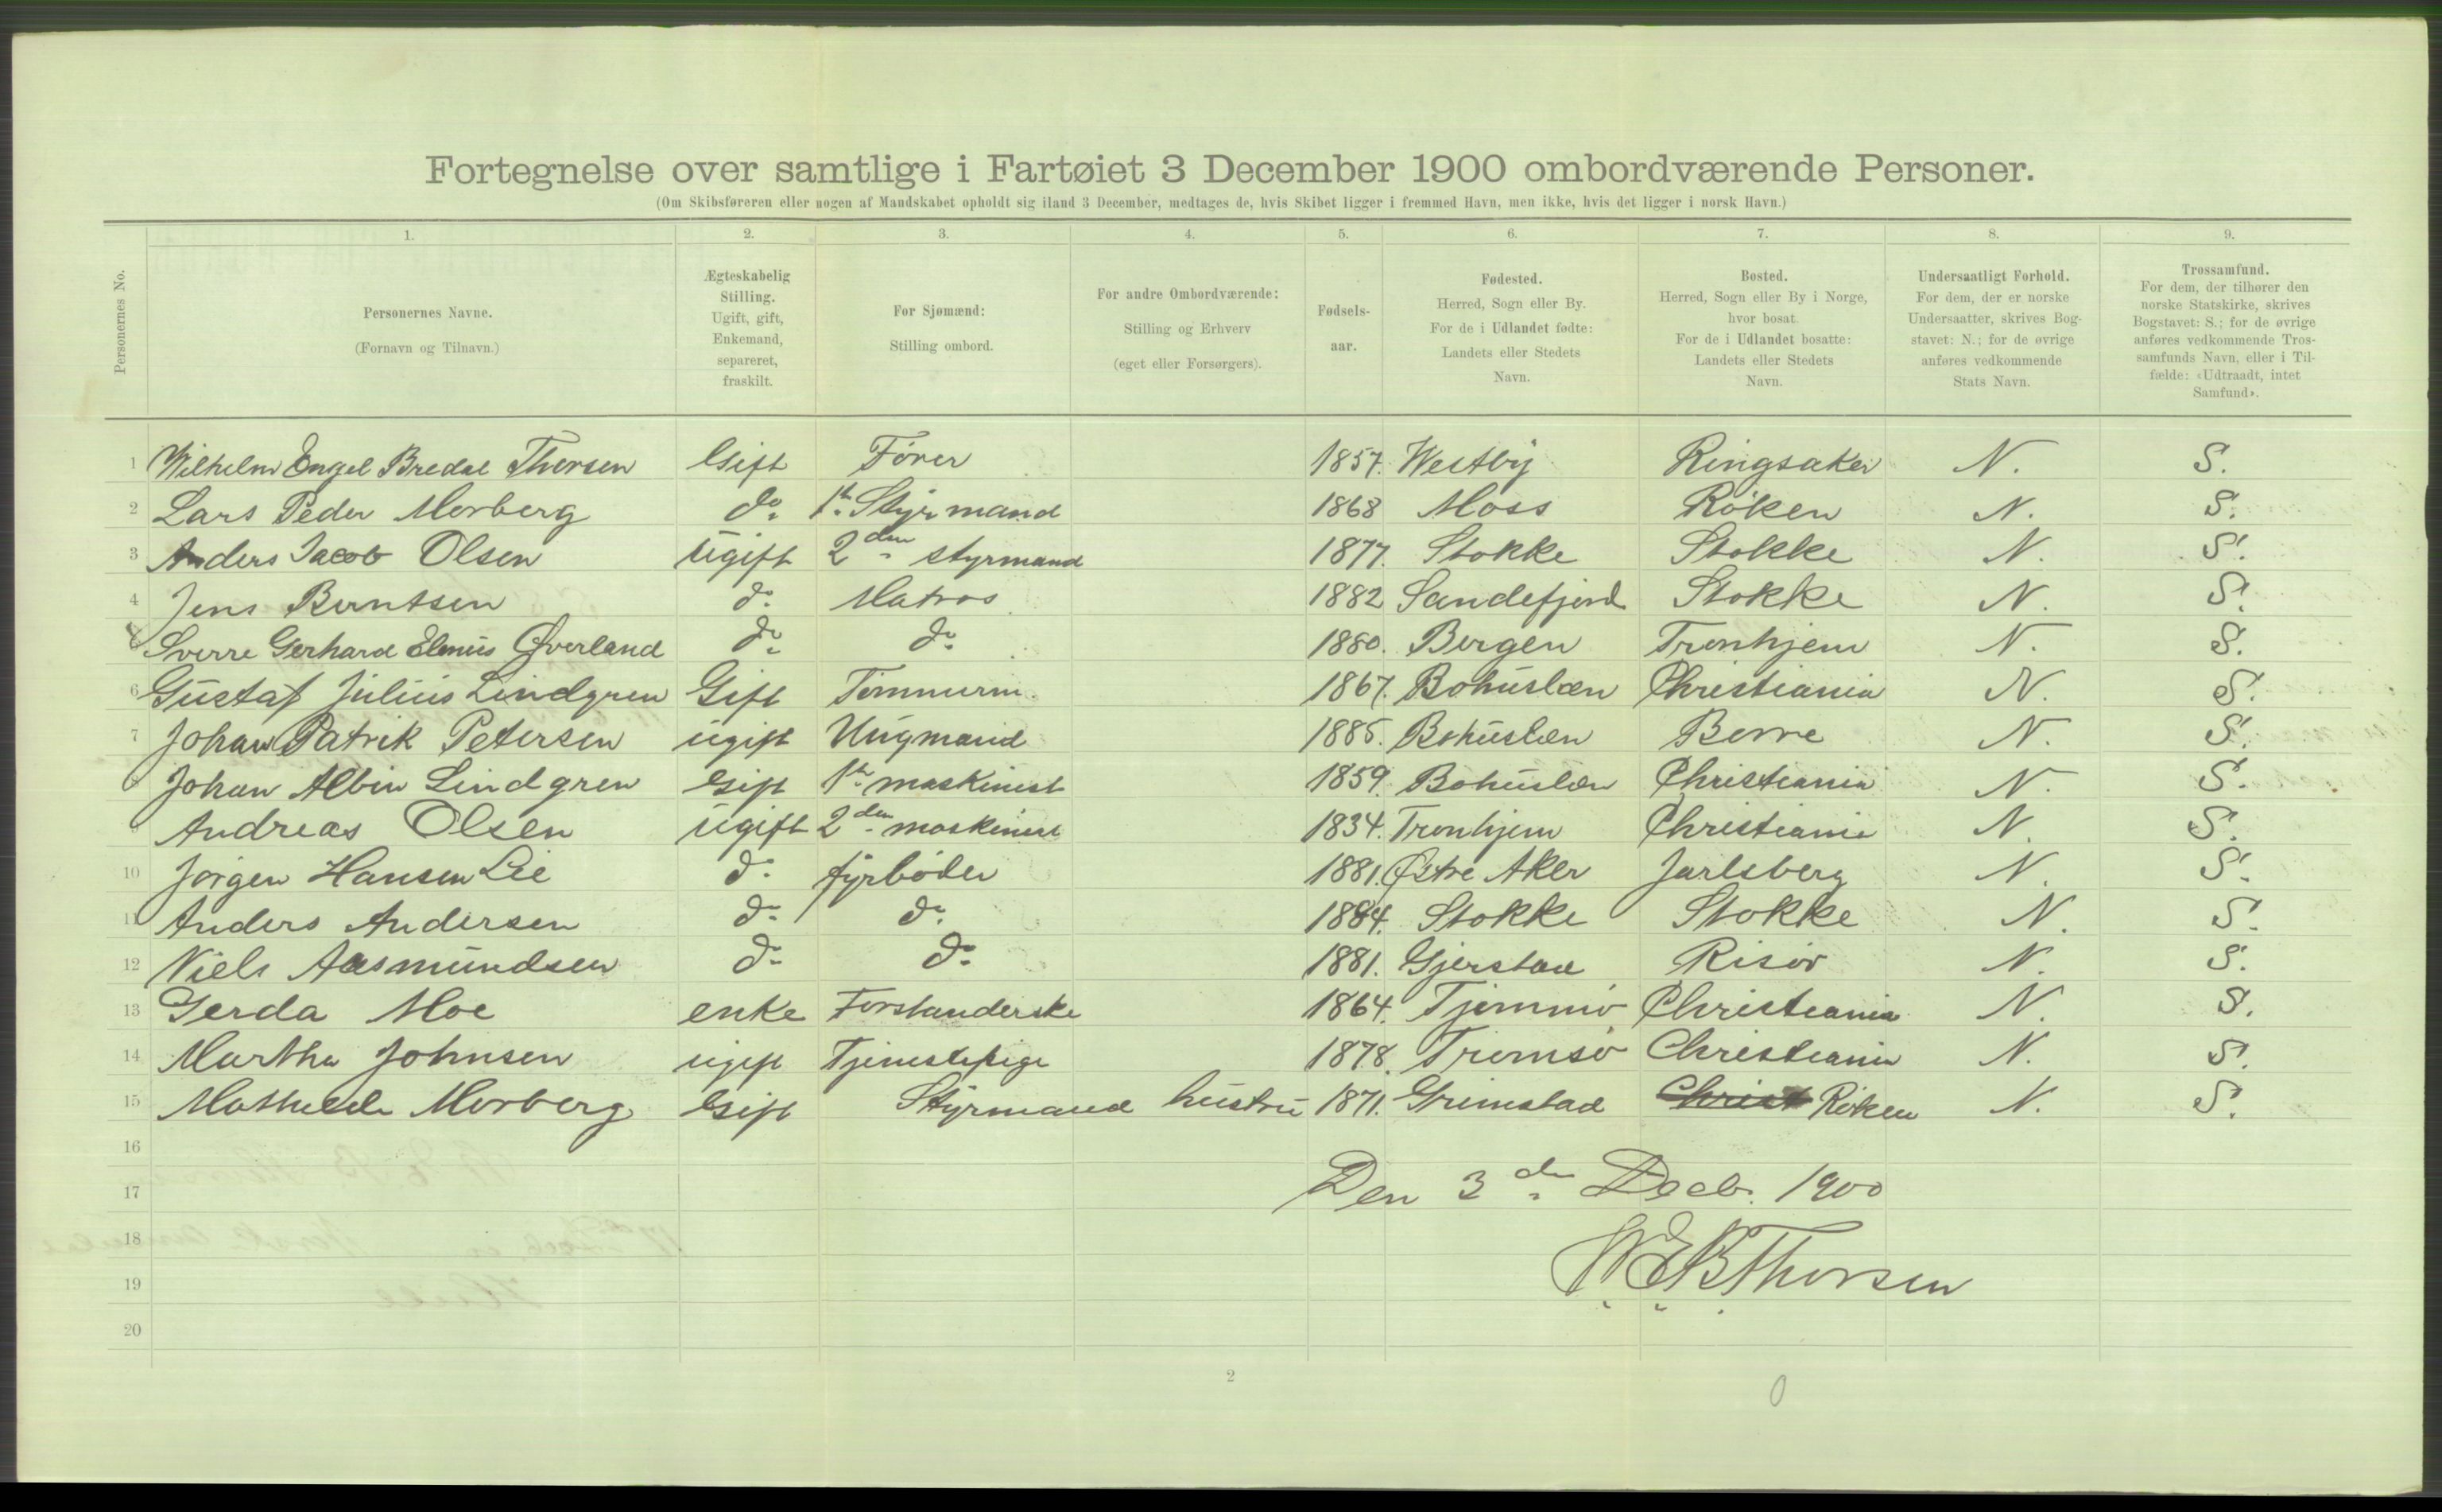 Fortegnelse over samtlige i Fartøiet 3 December 1900 ombordværende Personer.
(Om Skibsføreren eller nogen af Mandskabet opholdt sig iland 3 December, medtages de, hvis Skibet ligger i fremmed Havn, men ikke, hvis det ligger i norsk Havn.)
Personernes No.
1. 2. 3. 4. 5. 6. 7. 8. 9.
Personernes Navne.
(Fornavn og Tilnavn.)
Ægteskabelig
Stilling.
Ugift, gift,
Enkemand,
separeret,
fraskilt.
For Sjømænd:
Stilling ombord.
For andre Ombordværende:
Stilling og Erhverv
(eget eller Forsørgers).
Fødsels-
aar.
Fødested.
Herred, Sogn eller By.
For de i Udlandet fødte:
Landets eller Stedets
Navn.
Bosted.
Herred, Sogn eller By i Norge,
hvor bosat.
For de i Udlandet bosatte:
Landets eller Stedets
Navn.
Undersaatligt Forhold.
For dem, der er norske
Undersaatter, skrives Bog-
stavet: N.; for de øvrige
anføres vedkommende
Stats Navn.
Trossamfund.
For dem, der tilhører den
norske Statskirke, skrives
Bogstavet: S.; for de øvrige
anføres vedkommende Tros-
samfunds Navn, eller i Til-
fælde: «Udtraadt, intet
Samfund».
1 Wilhelm Engel Bredal Thorsen Gift Fører 1857. Westby Ringsaker N. S.
2 Lars Peder Morberg do. 1ste Styrmand 1868 Moss Röken N. S.
3 Anders Jacob Olsen Ugift 2den styrmand 1877. Stokke Stokke N. S.
4 Jens Berntsen do. Matros 1882 Sandefjord Stokke N. S.
5 Sverre Gerhard Elenius Øverland do. do. 1880. Bergen Tronhjem N. S.
6 Gustaf Julius Lindgren Gift Tömmerm. 1867. Bohuslæn Christiania N. S.
7 Johan Patrik Petersen ugift Ungmand 1885. Bohuslæn Borre N. S.
8 Johan Albin Lindgren Gift 1ste maskinist 1859. Bohuslæn Christiania N. S.
9 Andreas Olsen ugift 2den maskinist 1834. Tronhjem Christiania N. S.
10 Jörgen Hansen Lie do. fyrböder 1881. Østre Aker Jarlsberg N. S.
11 Anders Andersen do. do. 1884. Stokke Stokke N. S.
12 Niels Aasmundsen do. do. 1881. Gjerstad Risör N. S.
13 Gerda Moe enke Forstanderske 1864. Tjømmö Christiania N. S.
14 Martha Johnsen ugift Tjenestepige 1878. Tromsö Christiania N. S.
15 Mathilde Morberg Gift Styrmand hustru 1871. Grimstad Christ Röken N. S.
16
17 Den 3den Decb. 1900
18
W. E. B. Thorsen
19
20
2